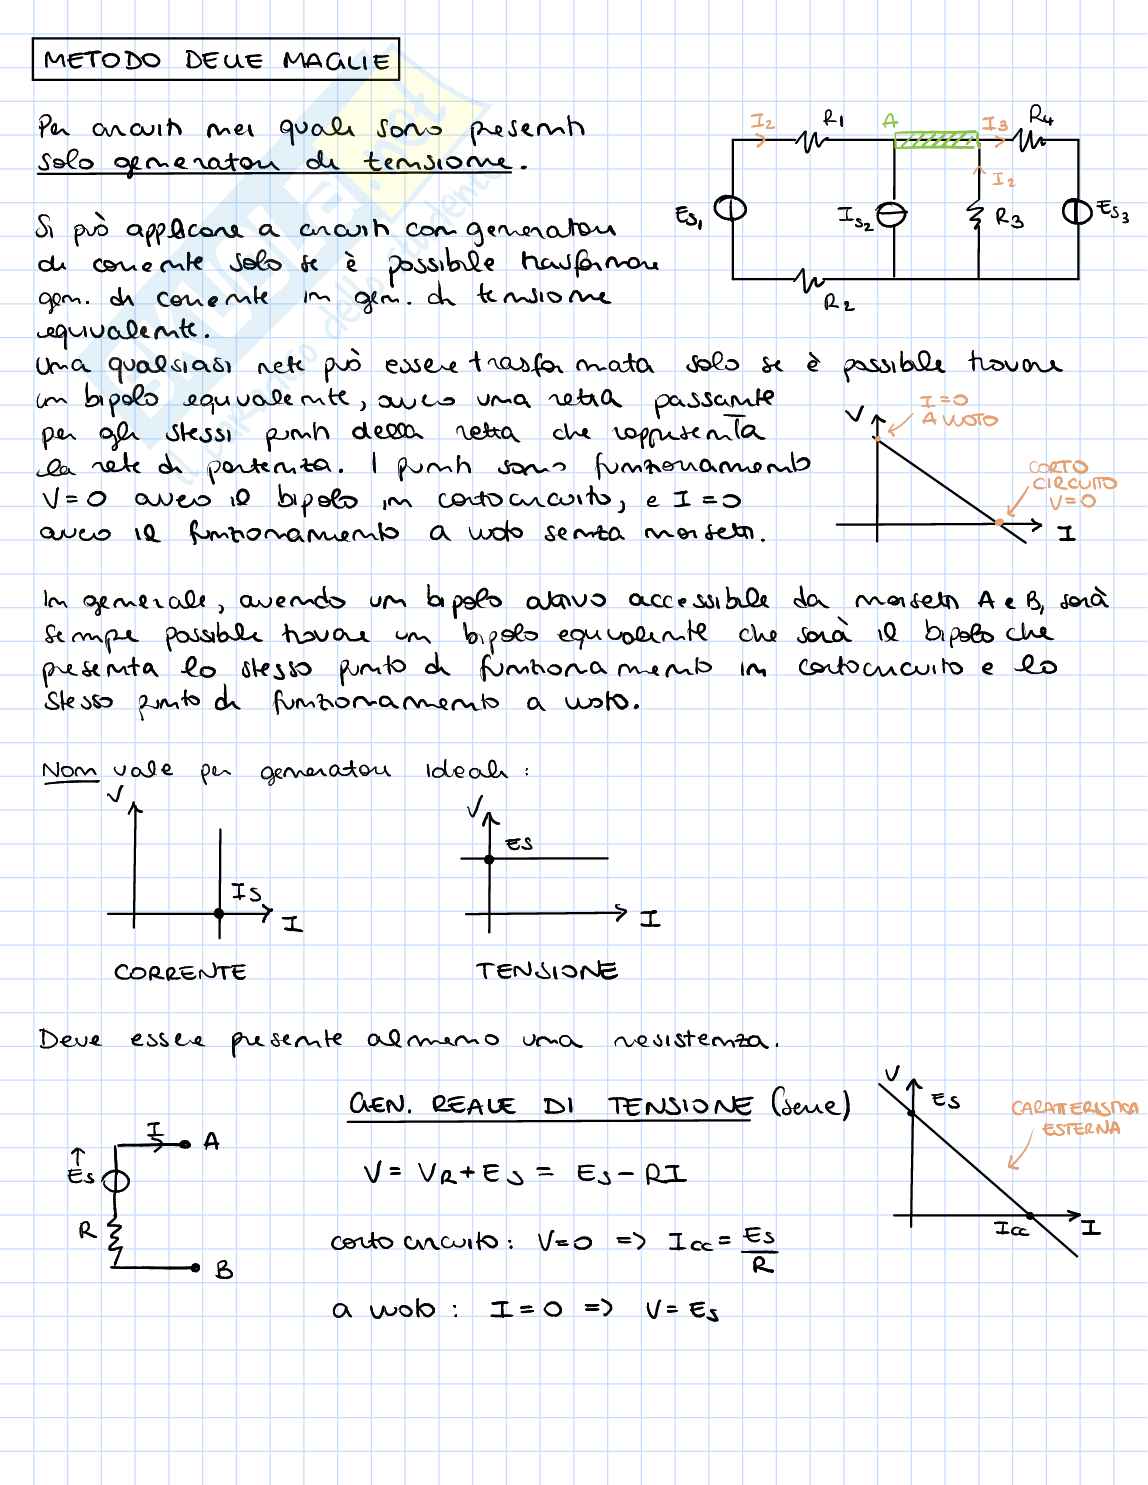 METODO DELLE MAGLIE
Per circuiti nei quali sono presenti
solo generatori di tensione.
Si può applicare a circuiti con generatori
di corrente solo se è possibile trasformare
gen. di corrente in gen. di tensione
equivalente.
I2 R1 A I3 R4
Es1 Is2 I2 R3 Es3
R2
Una qualsiasi rete può essere trasformata solo se è possibile trovare
un bipolo equivalente, avrò una retta passante
per gli stessi punti della retta che rappresenta
la rete di partenza. I punti sono funzionamento
V=0 avrò il bipolo in cortocircuito, e I=0
avrò il funzionamento a vuoto senza morsetti.
V I=0
A VUOTO
CORTO
CIRCUITO
V=0
I
In generale, avendo un bipolo attivo accessibile da morsetti A e B, sarà
sempre possibile trovare un bipolo equivalente che sarà il bipolo che
presenta lo stesso punto di funzionamento in cortocircuito e lo
stesso punto di funzionamento a vuoto.
Non vale per generatori ideali:
V
Is
I
CORRENTE
V
Es
I
TENSIONE
Deve essere presente almeno una resistenza.
GEN. REALE DI TENSIONE (serie)
I A
Es
R
B
V = VR + Es = Es - RI
corto circuito: V=0 => Icc = Es/R
a vuoto: I=0 => V=Es
V Es
CARATTERISTICA
ESTERNA
Icc I